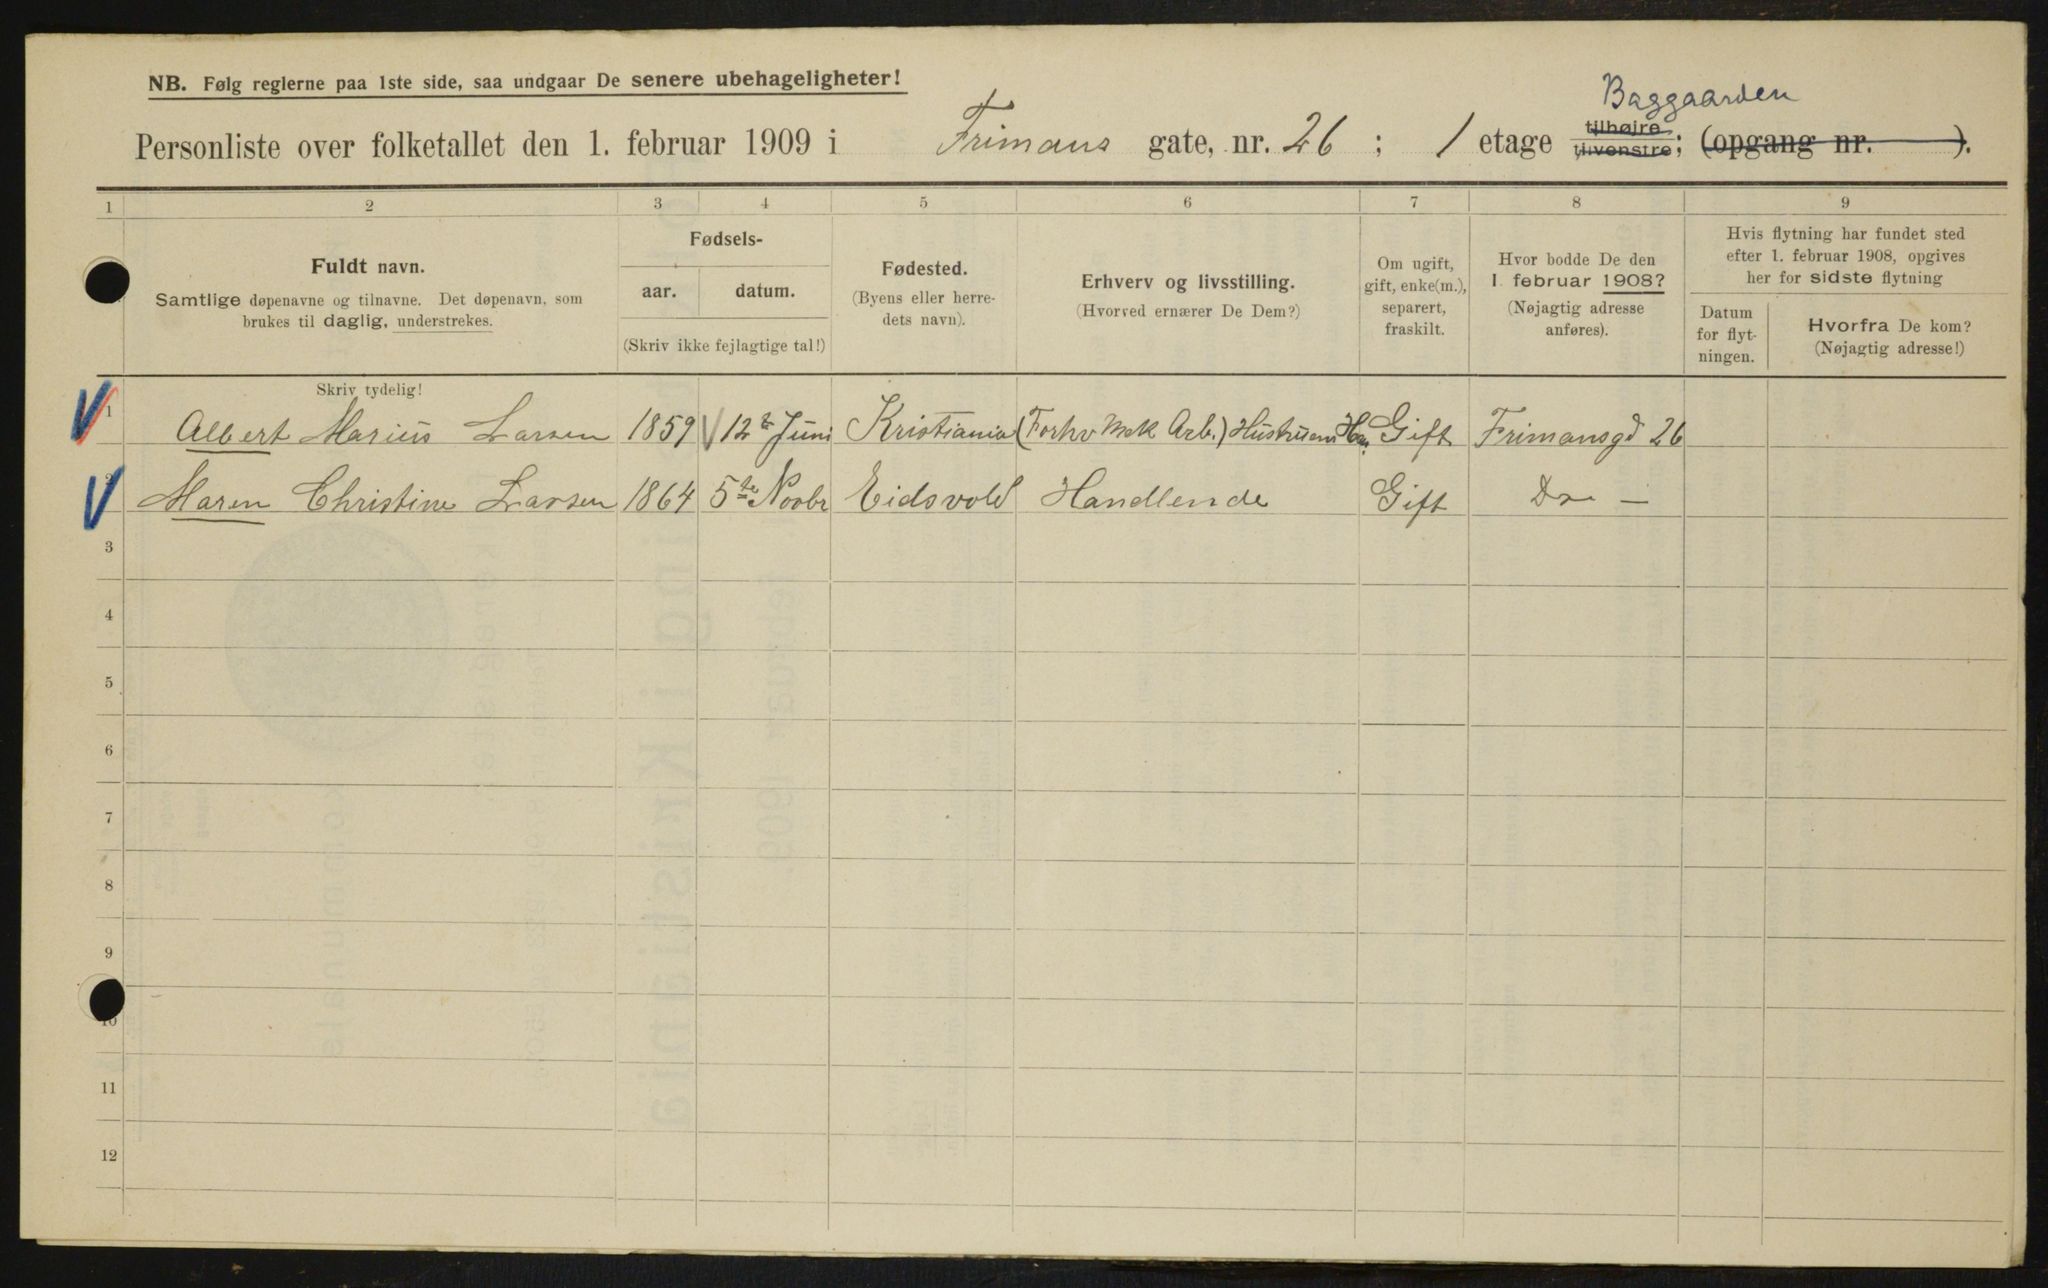 NB. Følg reglerne paa 1ste side, saa undgaar De senere ubehageligheter!
Baggaarden
Personliste over folketallet den 1. februar 1909 i Frimans gate, nr. 26 ; 1 etage tilhøjre tilvenstre; (opgang nr. ).
1 2 3 4 5 6 7 8 9
Fuldt navn.
Samtlige døpenavne og tilnavne. Det døpenavn, som
brukes til daglig, understrekes.
Fødsels-
aar. datum.
(Skriv ikke fejlagtige tal!)
Fødested.
(Byens eller herre-
dets navn).
Erhverv og livsstilling.
(Hvorved ernærer De Dem?)
Om ugift,
gift, enke(m.),
separert,
fraskilt.
Hvor bodde De den
1. februar 1908?
(Nøjagtig adresse
anføres).
Hvis flytning har fundet sted
efter 1. februar 1908, opgives
her for sidste flytning
Datum
for flyt-
ningen.
Hvorfra De kom?
(Nøjagtig adresse!)
Skriv tydelig!
1 Albert Marius Larsen 1859 12te Juni Kristiania (Forhv Mek Arb.) Hustruens Han. Gift Frimansgd 26
2 Maren Christine Larsen 1864 5te Novbr Eidsvold Handlende Gift Do —
3
4
5
6
7
8
9
10
11
12